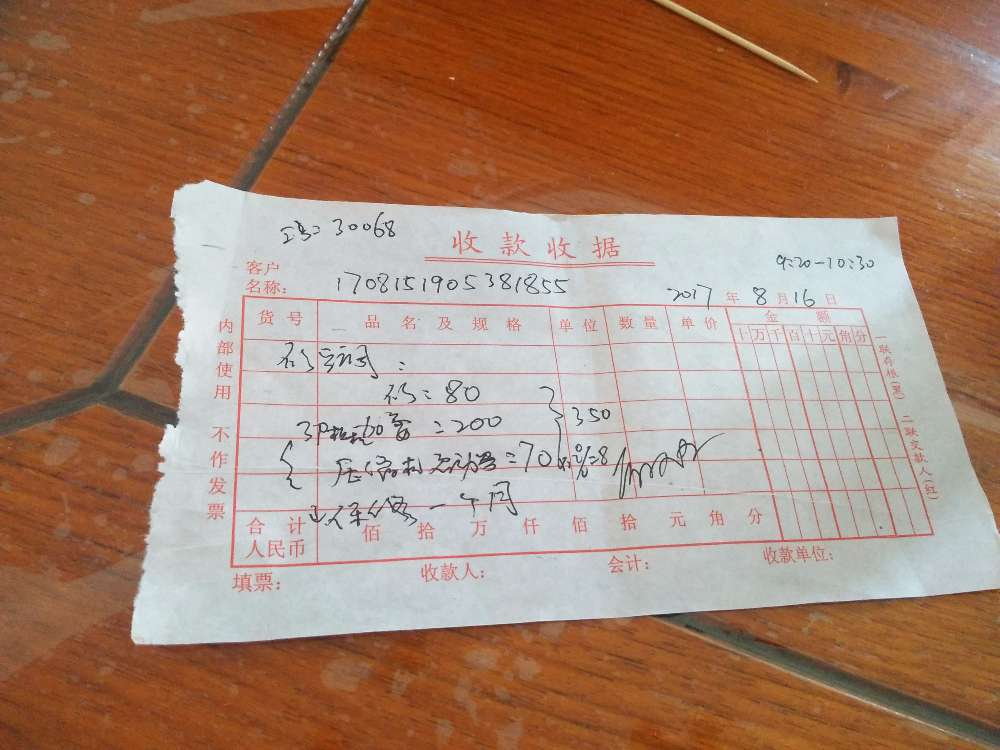 工号=30068
收款收据
9:20-10:30
客户
名称: 1708151905381855
2017年8月16日
货号 品名及规格 单位 数量 单价 金额
十万千百十元角分
=80
3P 加 =200
350
压缩机 =70
=8
一个月
合计
人民币 佰 拾 万 仟 佰 拾 元 角 分
填票: 收款人: 会计: 收款单位:
内部使用 不作发票
一联存根(黑) 二联交款人(红)